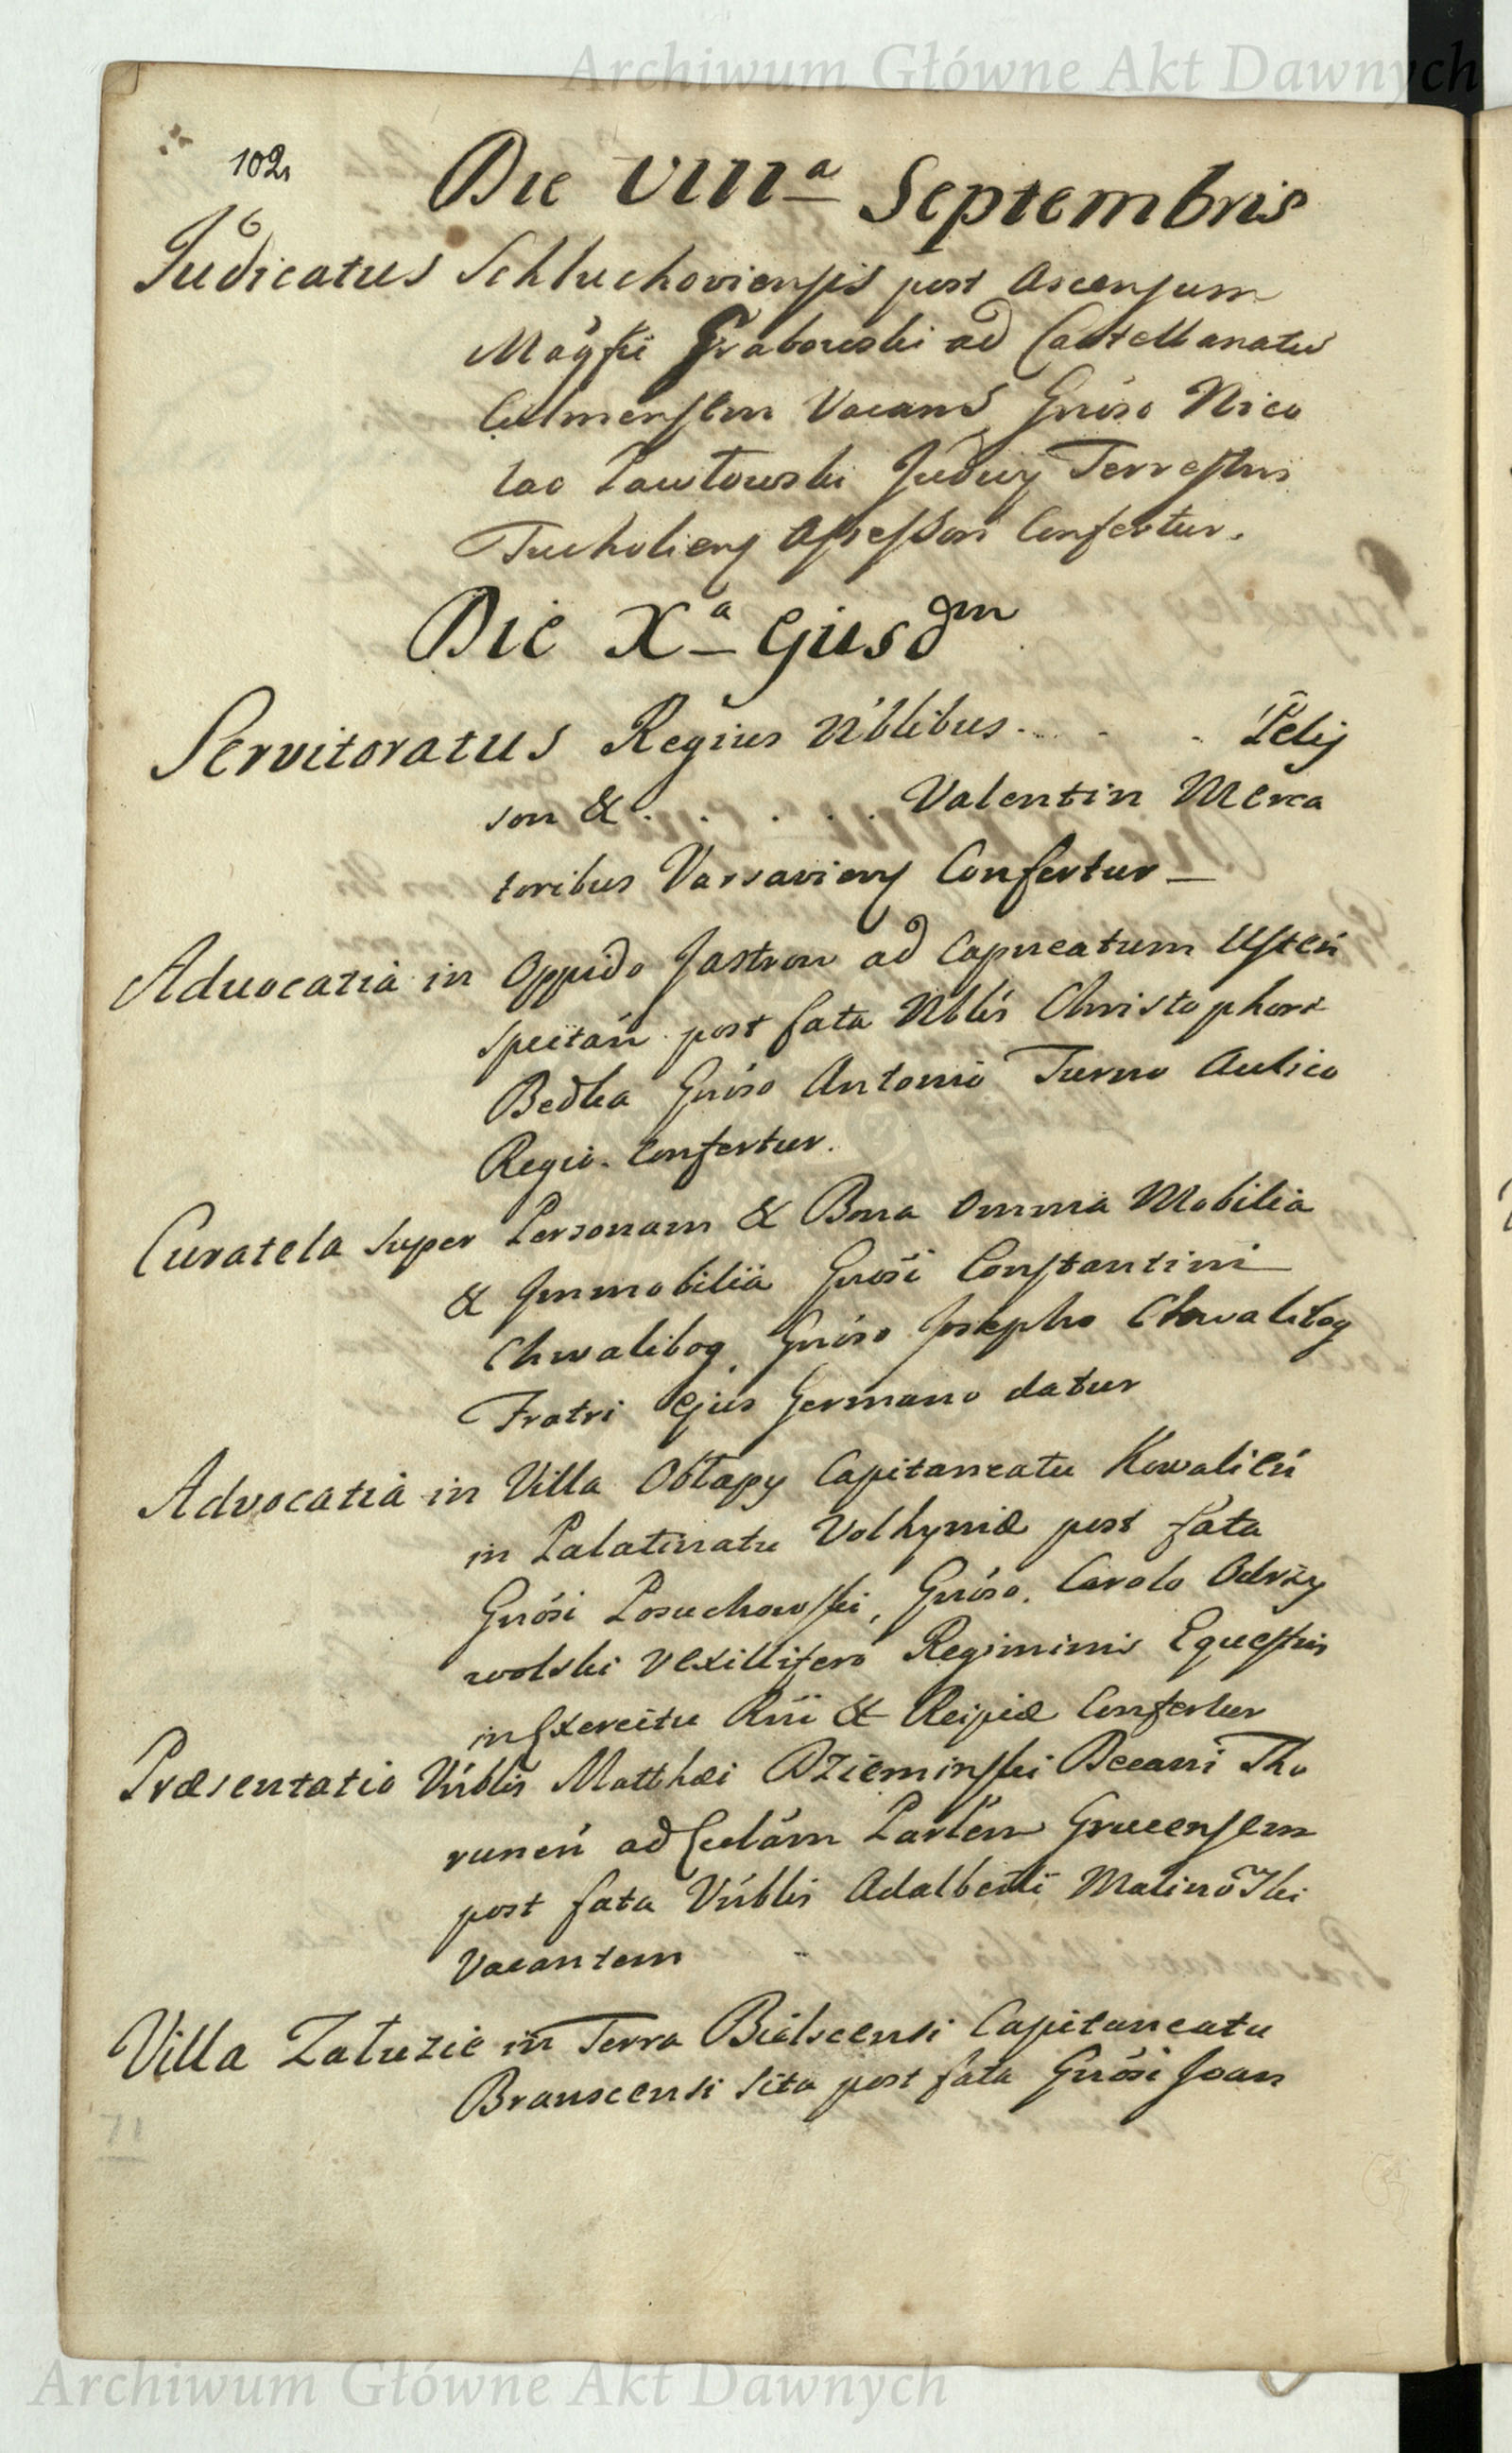 Archiwum Główne Akt Dawnych
102
Die VIIIª Septembris
Judicatus Schluchoviensis post Ascensum
Magfci Grabowski ad Castellanatu
Culmensem Vacans, Gnoso Nico
lao Pawłowski Judicij Terrestris
Tucholiens Assessori Confertur.
Die Xª Ejusdm
Servitoratus Regius Nblibus . . . Pelis
son & . . . . . Valentin Merca
toribus Varsaviens Confertur
Advocatia in Oppido Jastrow ad Capneatum Usten
spectan post fata Nblis Christophori
Bedka Gnoso Antonio Turno Aulico
Regio. Confertur.
Curatela super Personam & Bona omnia Mobilia
& Immobilia Gnosi Constantini
Chwalibog, Gnoso Josepho Chwalibog
Fratri Ejus Germano datur
Advocatia in Villa Obłapy Capitaneatu Kowalien
in Palatinatu Volhyniæ post fata
Gnosi Posuchowski, Gnoso. Carolo Odrzy
wolski Vexillifero Regiminis Equestris
in Exercitu Rni & Reipcæ Confertur
Præsentatio Vnblis Matthæi Dzieminski Decani Tho
runen ad Ecclam Parlem Grucensem
post fata Vnblis Adalberti Malinowski
Vacantem
Villa Załuzie in Terra Bielscensi Capitaneatu
Branscensi Sita post fata Gnosi Joan
71
Archiwum Główne Akt Dawnych